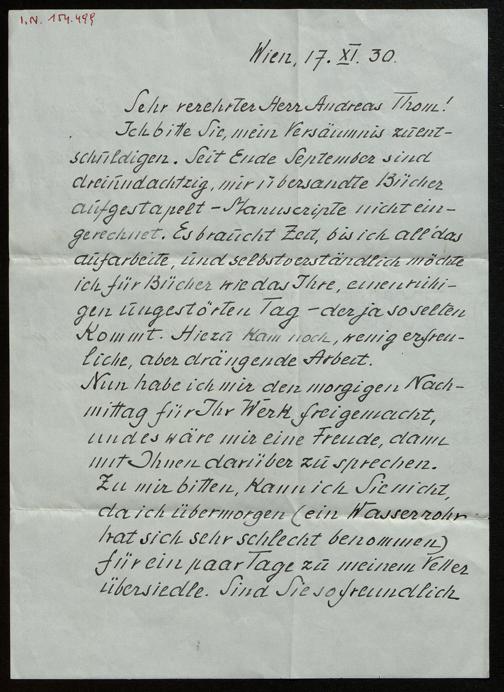 I.N. 154.499
Wien, 17. XI. 30.
Sehr verehrter Herr Andreas Thom!
Ich bitte Sie, mein Versäumnis zu ent-
schuldigen. Seit Ende September sind
dreiundachtzig, mir übersandte Bücher
aufgestapelt – Manuscripte nicht ein-
gerechnet. Es braucht Zeit, bis ich all' das
aufarbeite, und selbstverständlich möchte
ich für Bücher wie das Ihre, einen ruhi-
gen ungestörten Tag – der ja so selten
kommt. Hiezu kam noch, wenig erfreu-
liche, aber drängende Arbeit.
Nun habe ich mir den morgigen Nach-
mittag für Ihr Werk freigemacht,
und es wäre mir eine Freude, dann
mit Ihnen darüber zu sprechen.
Zu mir bitten, kann ich Sie nicht,
da ich übermorgen (ein Wasserrohr
hat sich sehr schlecht benommen)
für ein paar Tage zu meinem Vetter
übersiedle. Sind Sie so freundlich